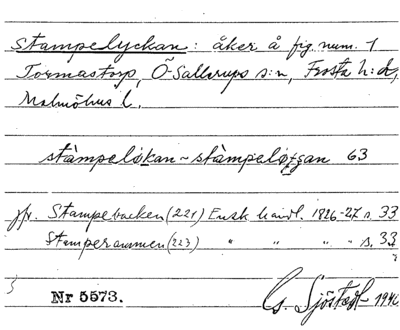 Stampelyckan: åker å fig. num. 1
Tormastorp, Ö Sallerups s:n, Frosta h:d,
Malmöhus l.
stàmpelökan ~ stàmpeløʒgan 63
jfr. Stampebacken (221) Ensk handl. 1826-27 s. 33
Stamperummen (223) " " " - " s. 33
Nr 5573.
G. Sjöstedt 1946